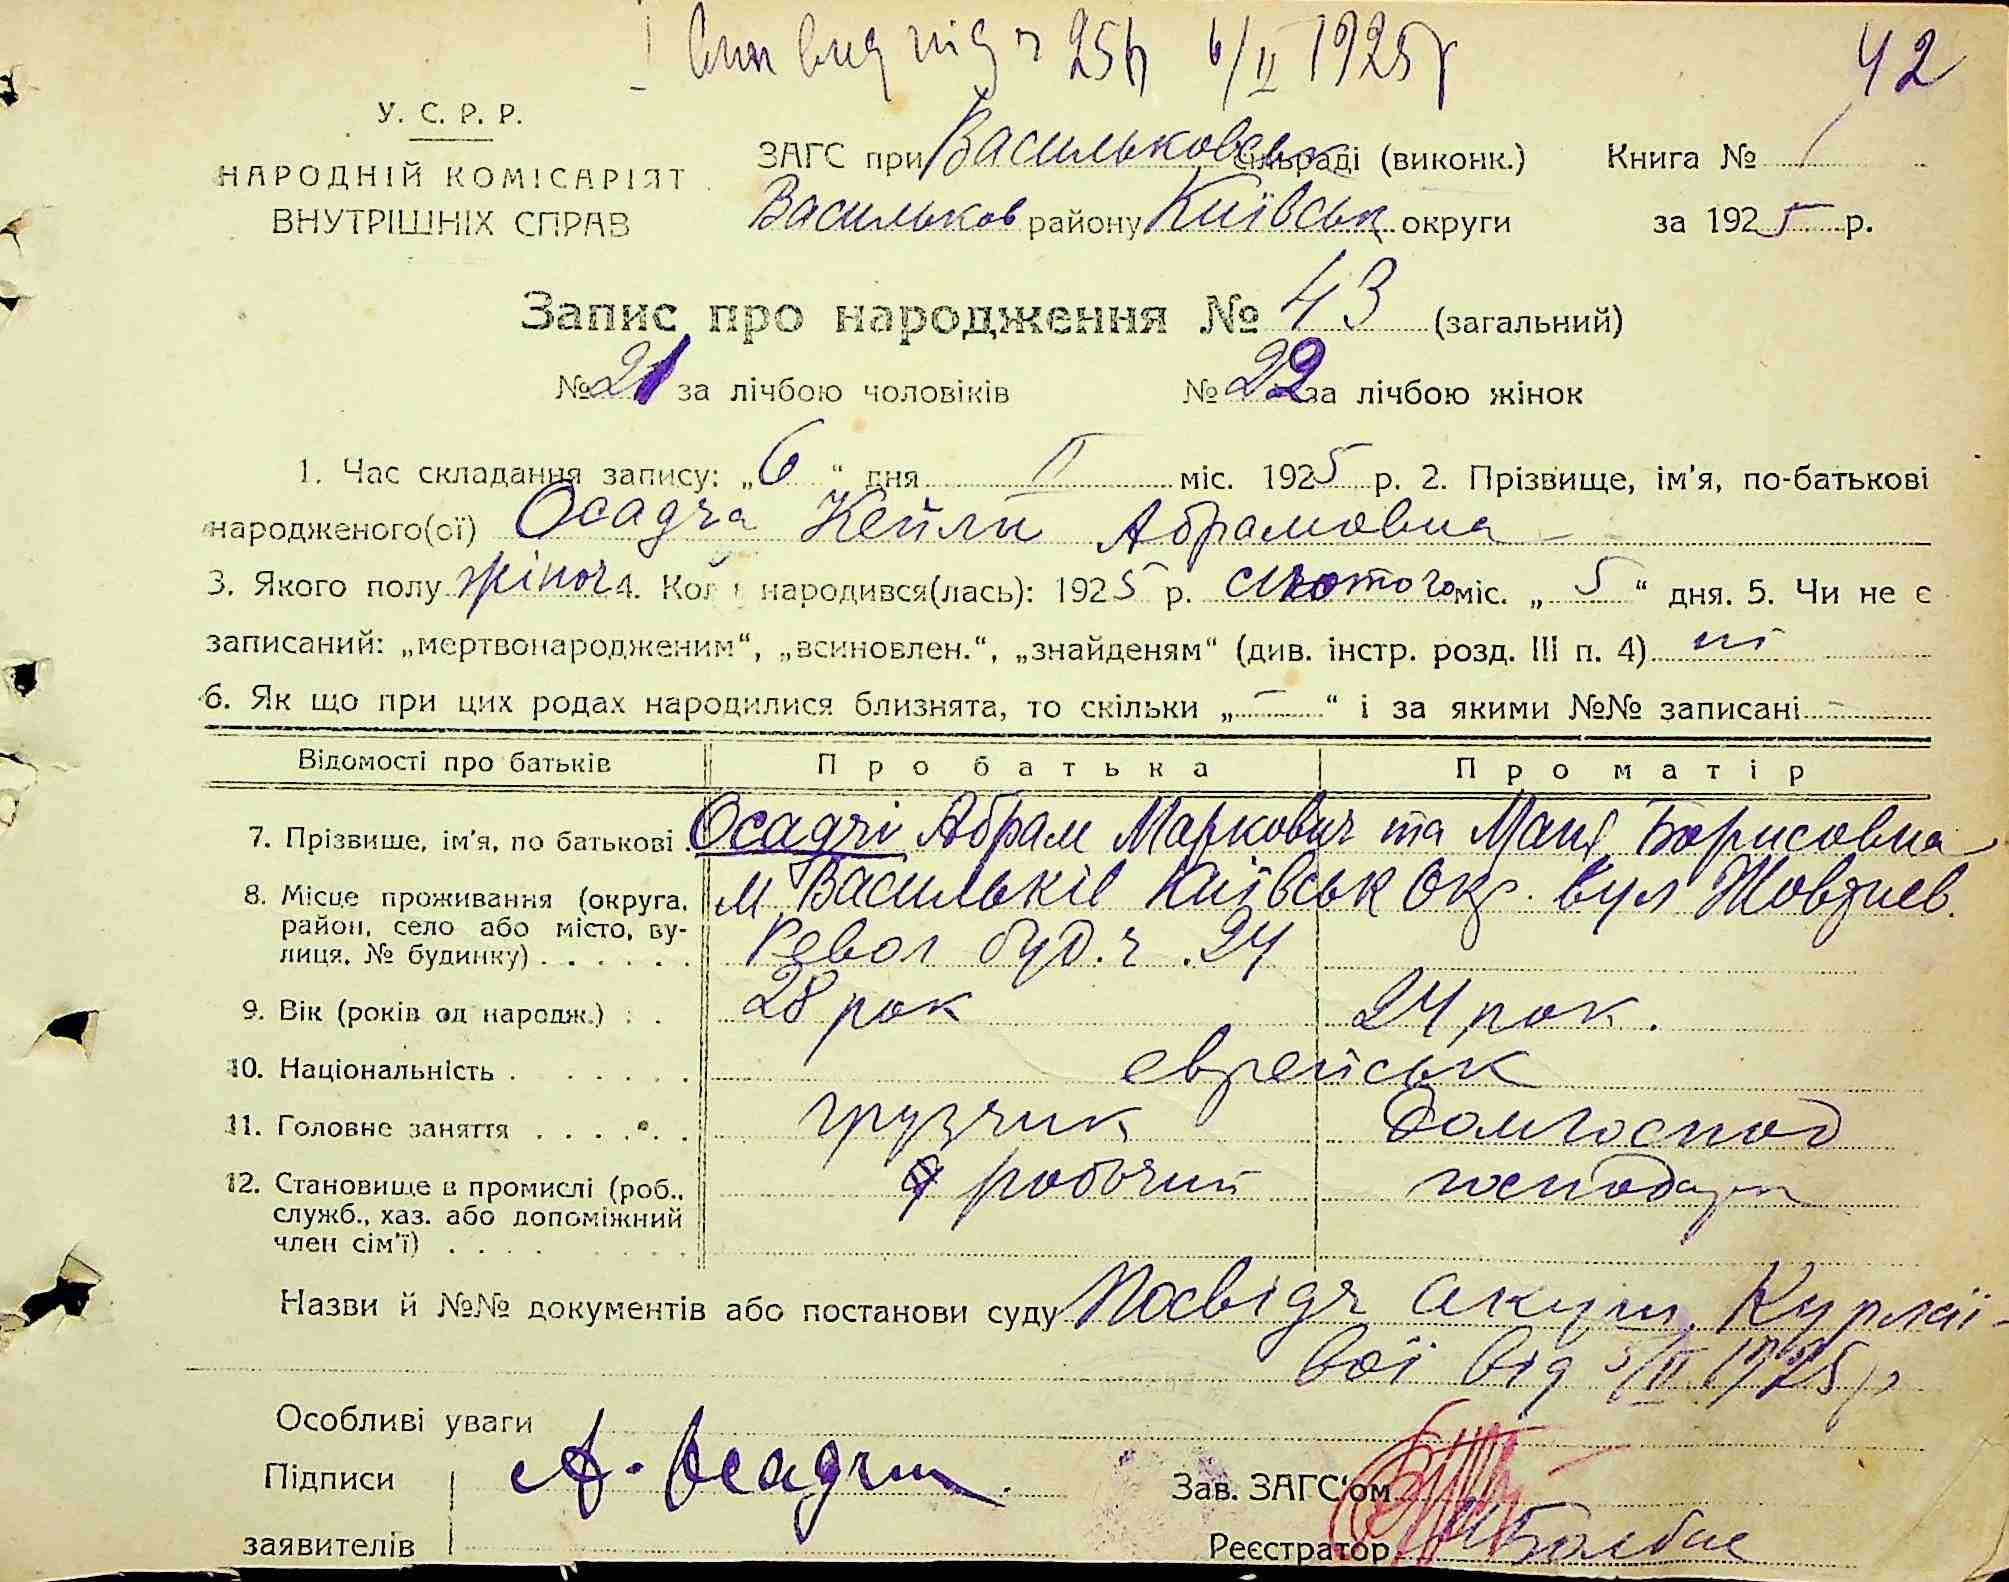 вид під ч 256 6/II 1925 р
42
У. С. Р. Р.
НАРОДНІЙ КОМІСАРІЯТ
ВНУТРІШНІХ СПРАВ
ЗАГС при Васильковськ сільраді (виконк.) Книга № 1
Васильков району Київськ округи за 1925 р.
Запис про народження № 43 (загальний)
№ 21 за лічбою чоловіків № 22 за лічбою жінок
1. Час складання запису: „6“ дня II міс. 1925 р. 2. Прізвище, ім'я, по-батькові
народженого(ої) Осадча Кейля Абрамовна
3. Якого полу жіноч 4. Коли народився(лась): 1925 р. лютого міс. „5“ дня. 5. Чи не є
записаний: „мертвонародженим“, „всиновлен.“, „знайденям“ (див. інстр. розд. III п. 4) ні
6. Як що при цих родах народилися близнята, то скільки „—“ і за якими №№ записані —
Відомості про батьків Про батька Про матір
7. Прізвише, ім'я, по батькові . Осадчі Абрам Маркович та Маня Борисовна
8. Місце проживання (округа, район, село або місто, ву-лиця, № будинку) . . . . . . м Васильків Київськ Окр. вул Жовтнев.
Револ буд. ч. 24
9. Вік (років од народж.) . . 28 рок 24 рок.
10. Національність . . . . . . . еврейськ
11. Головне заняття . . . . . . грузчик Домгоспод
12. Становище в промислі (роб., служб., хаз. або допоміжний член сім'ї) . . . . робочий господар
Назви й №№ документів або постанови суду Посвідч акуш.
від 5/II 1925 р
Особливі уваги
Підписи А. Осадчи Зав. ЗАГС'ом
заявителів Реєстратор